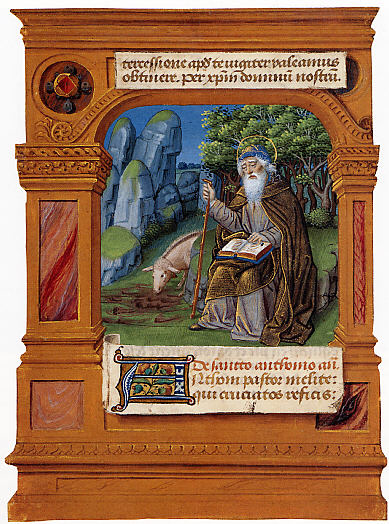 tercessione apd te iugiter valeamus
obtinere. Per xp̄m dominū nostrū.
De sancto anthonio añ.
ANthoni pastor inclite:
qui cruciatos reficis: